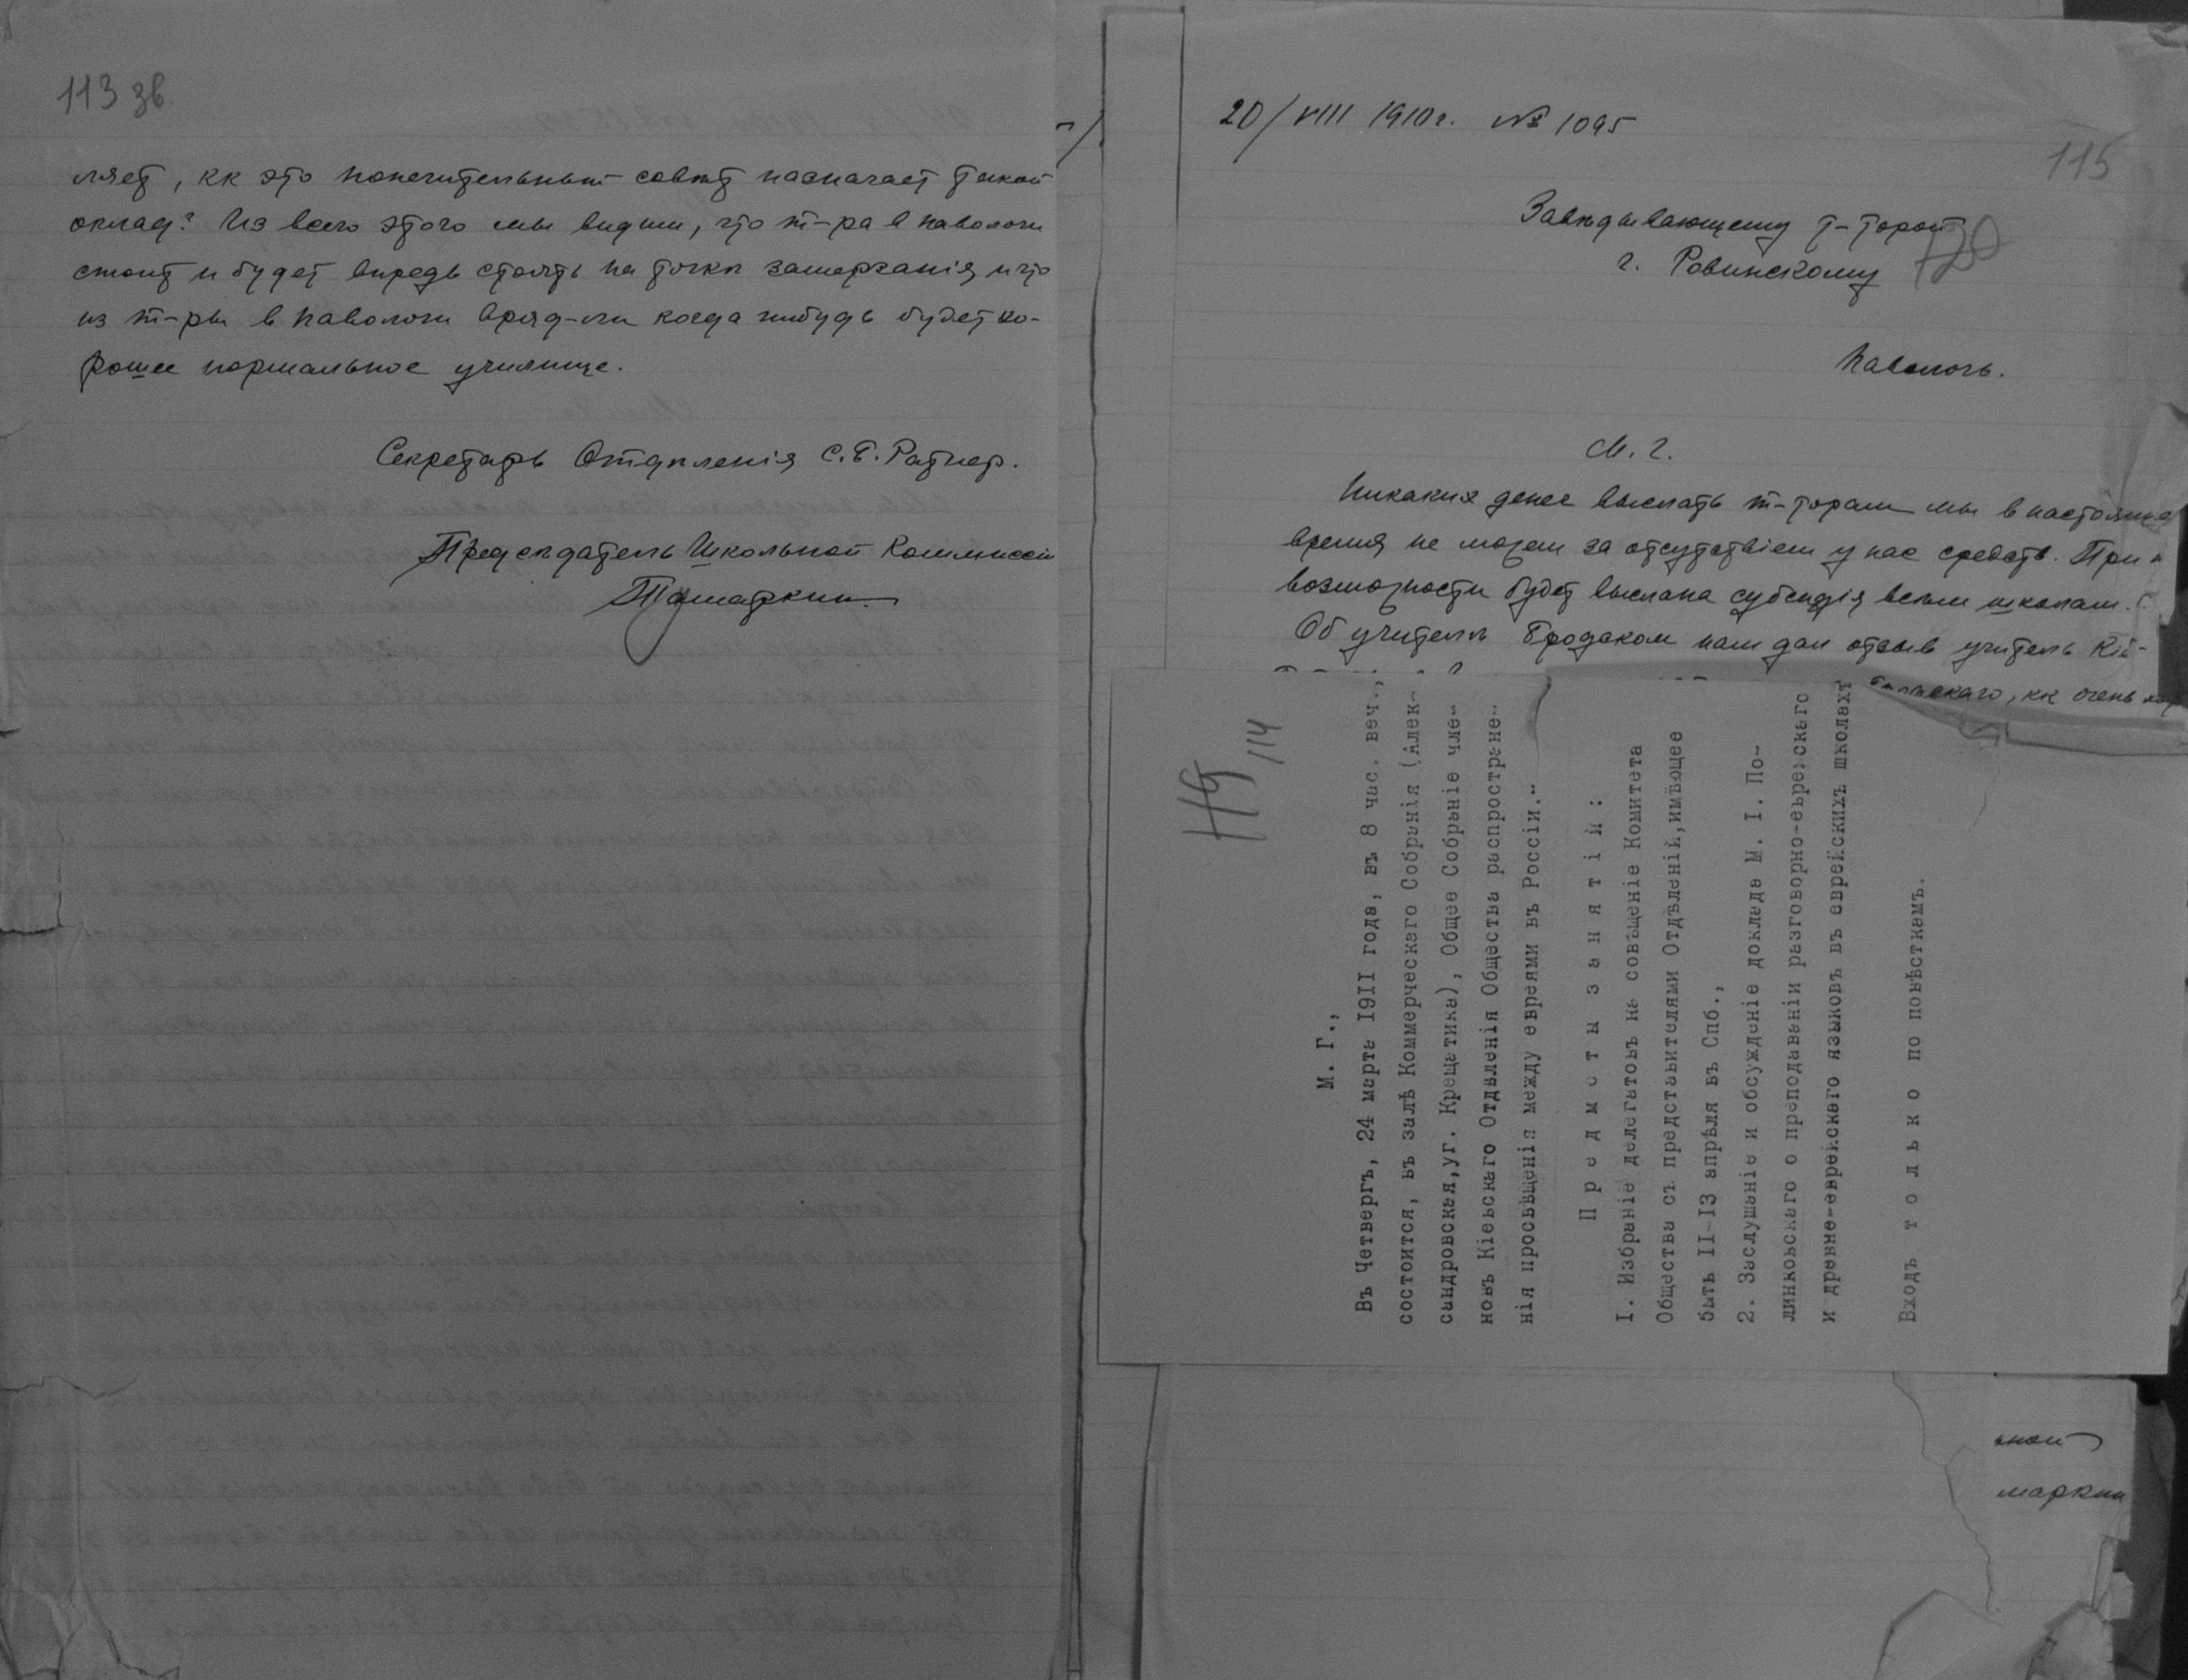 113 зв.
ляет, кк это попечительный совѣт назначает такой
оклад? Из всего этого мы видим, что т-ра в Паволочи
стоит и будет впредь стоять на точкѣ замерзанія, и что
из т-ры в Паволочи вряд-ли когда нибудь будет хо-
рошее нормальное училище.
Секретарь Отдѣленія С. Г. Ратнер.
Предсѣдатель Школьной Коммиссіи
Тамаркин.
20/VIII 1910 г. № 1095
115
Завѣдывающему т-торой
120
г. Ровинскому
Паволочь.
М. г.
Никаких денег выслать т-торам мы в настоящее
время не можем за отсутствіем у нас средств. При
возможности будет выслана субсидія всѣм школам.
Об учителѣ Бродском нам дал отзыв учитель Кіе-
скаго, кк очень
114
М. Г.,
Въ Четвергъ, 24 марта 1911 года, въ 8 час. веч.,
состоится, въ залѣ Коммерческаго Собранія (Алек-
сандровская,уг. Крещатика), Общее Собраніе чле-
новъ Кіевскаго Отдѣленія Общества распростране-
нія просвѣщенія между евреями въ Россіи.-
Предметы занятій:
I. Избраніе делегатовъ на совѣщаніе Комитета
Общества съ представителями Отдѣленій,имѣющее
быть II-I3 апрѣля въ Спб.,
2. Заслушаніе и обсужденіе доклада М. I. По-
линковскаго о преподаваніи разговорно-еврейскаго
и древне-еврейскаго языковъ въ еврейскихъ школахъ
Входъ только по повѣсткамъ.
ьной
маркин